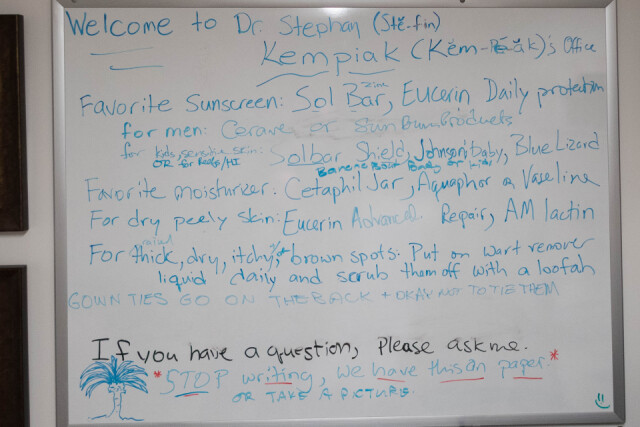 Welcome to Dr. Stephan (Stĕ-fin)
Kempiak (Kĕm-)'s Office
Favorite Sunscreen: Sol Bar, Eucerin Daily protection
for men: Cerave or Sun Bum Products
for kids, sensitive skin: Solbar Shield, Johnson's baby, Blue Lizard
OR for Reefs/HI Banana Boat Baby or kids
Favorite moisturizer: Cetaphil Jar, Aquaphor or Vaseline
For dry peely skin: Eucerin Advanced Repair, AM lactin
For thick, dry, itchy, brown spots: Put on wart remover
liquid daily and scrub them off with a loofah
GOWN TIES GO ON THE BACK + OKAY NOT TO TIE THEM
If you have a question, Please ask me.
*STOP writing, we have this on paper.*
OR TAKE A PICTURE.